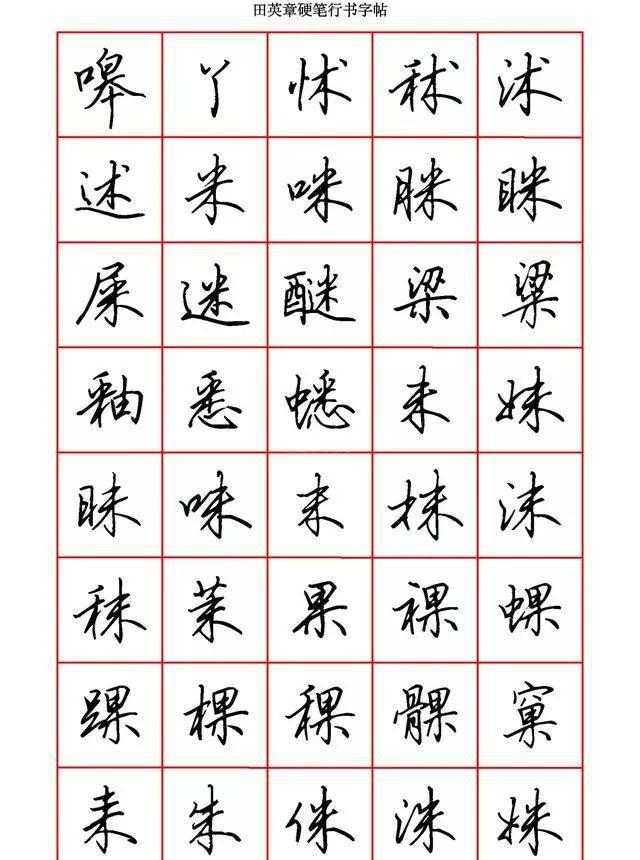 田英章硬笔行书字帖
嗥丫怵秫沭
述米咪脒眯
屎迷醚梁粱
釉悉蟋未妹
昧味末抹沫
秣茉果裸蜾
踝棵稞髁窠
耒朱侏洙姝